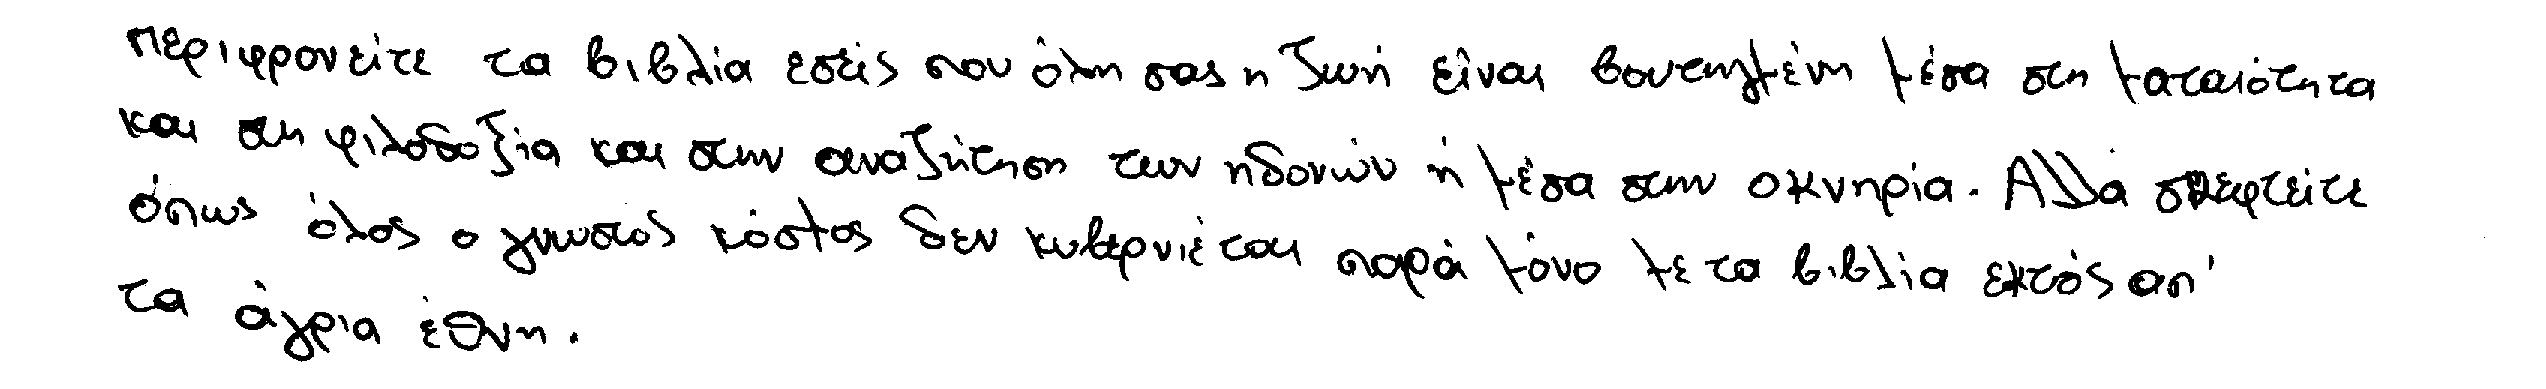 περιφρονείτε τα βιβλία εσείς που όλη σας η ζωή είναι βουτηγμένη μέσα στη ματαιότητα
και στη φιλοδοξία και στην αναζήτηση των ηδονών ή μέσα στην οκνηρία. Αλλά σκεφτείτε
όπως όλος ο γνωστός κόσμος δεν κυβερνιέται παρά μόνο με τα βιβλία εκτός απ'
τα άγρια έθνη.